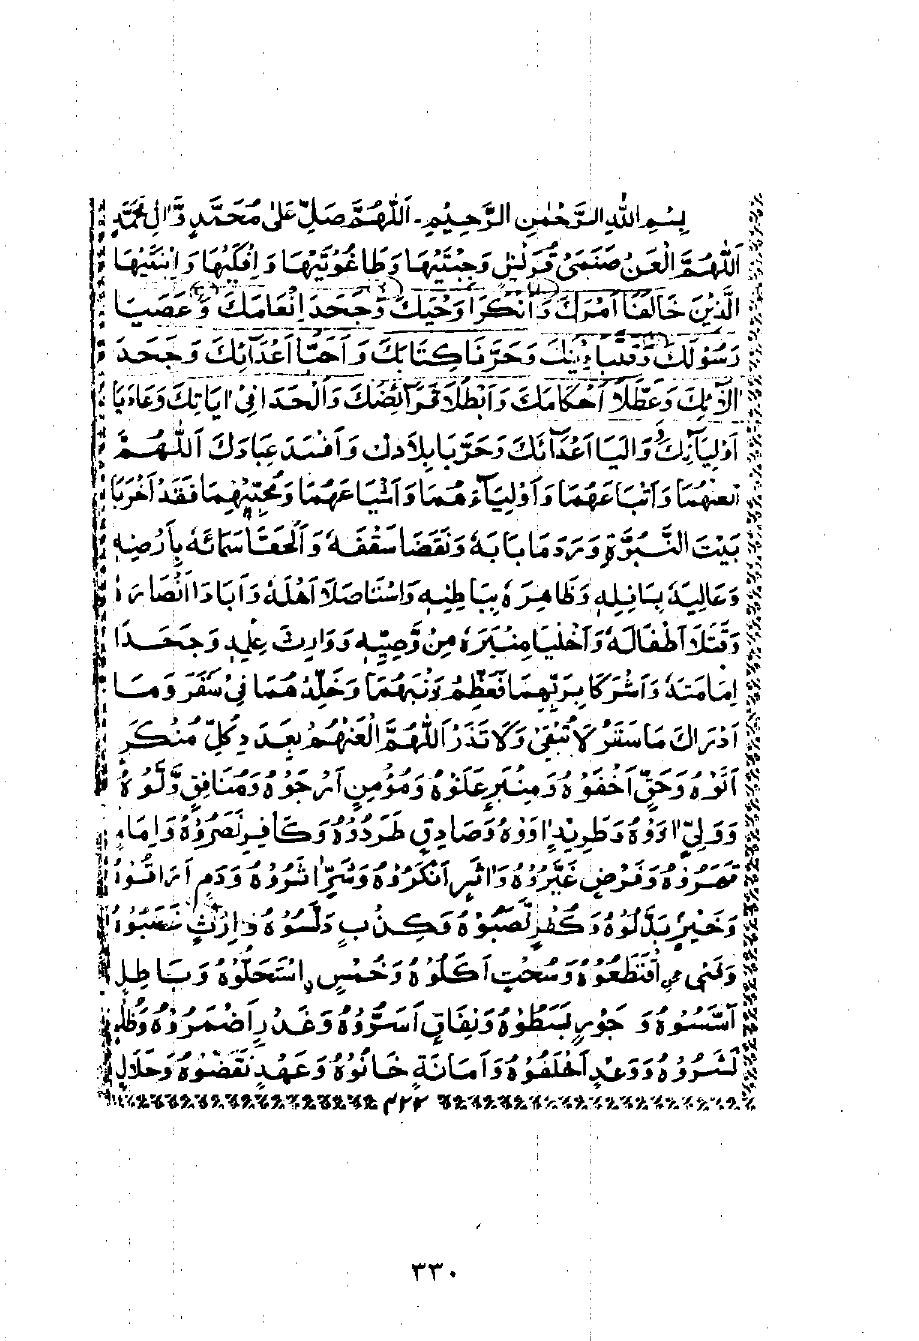 بِسْمِ اللهِ الرَّحْمٰنِ الرَّحِيْمِ۔ اَللّٰهُمَّ صَلِّ عَلٰى مُحَمَّدٍ وَّاٰلِ مُحَمَّدٍ
اَللّٰهُمَّ الْعَنْ صَنَمَیْ قُرَيْشٍ وَجِبْتَيْهَا وَطَاغُوْتَيْهَا وَاِفْكَيْهَا وَابْنَتَيْهَا
الَّذَيْنِ خَالَفَا اَمْرَكَ وَاَنْكَرَا وَحْيَكَ وَجَحَدَا اِنْعَامَكَ وَعَصَيَا
رَسُوْلَكَ وَقَلَّبَا دِيْنَكَ وَحَرَّفَا كِتَابَكَ وَاَحَبَّا اَعْدَائَكَ وَجَحَدَ
اٰلَائَكَ وَعَطَّلَا اَحْكَامَكَ وَاَبْطَلَا فَرَآئِضَكَ وَاَلْحَدَا فِیْ اٰيَاتِكَ وَعَادَيَا
اَوْلِيَآئَكَ وَوَالَيَا اَعْدَآئَكَ وَخَرَّبَا بِلَادَكَ وَاَفْسَدَ عِبَادَكَ اَللّٰهُمَّ
الْعَنْهُمَا وَاَتْبَاعَهُمَا وَاَوْلِيَآءَهُمَا وَاَشْيَاعَهُمَا وَمُحِبِّيْهِمَا فَقَدْ اَخْرَبَا
بَيْتَ النُّبُوَّةِ وَرَدَمَا بَابَهٗ وَنَقَضَا سَقْفَهٗ وَاَلْحَقَا سَمَائَهٗ بِاَرْضِهٖ
وَعَالِيَهٗ بِسَافِلِهٖ وَظَاهِرَهٗ بِبَاطِنِهٖ وَاسْتَاصَلَا اَهْلَهٗ وَاَبَادَا اَنْصَارَهٗ
وَقَتَلَا اَطْفَالَهٗ وَاَخْلَيَا مِنْبَرَهٗ مِنْ وَّصِيِّهٖ وَوَارِثِ عِلْمِهٖ وَجَحَدَا
اِمَامَتَهٗ وَاَشْرَكَا بِرَبِّهِمَا فَعَظِّمْ ذَنْبَهُمَا وَخَلِّدْهُمَا فِیْ سَقَرَ وَمَا
اَدْرَاكَ مَا سَقَرُ لَا تُبْقِیْ وَلَا تَذَرُ اَللّٰهُمَّ الْعَنْهُمْ بِعَدَدِ كُلِّ مُنْكَرٍ
اَتَوْهُ وَحَقٍّ اَخْفَوْهُ وَمِنْبَرٍ عَلَوْهُ وَمُؤْمِنٍ اَرْجَوْهُ وَمُنَافِقٍ وَّلَّوْهُ
وَوَلِیٍّ اٰذَوْهُ وَطَرِيْدٍ اٰوَوْهُ وَصَادِقٍ طَرَدُوْهُ وَكَافِرٍ نَصَرُوْهُ وَاِمَامٍ
قَهَرُوْهُ وَفَرْضٍ غَيَّرُوْهُ وَاَثَرٍ اَنْكَرُوْهُ وَشَرٍّ اٰثَرُوْهُ وَدَمٍ اَرَاقُوْهُ
وَخَيْرٍ بَدَّلُوْهُ وَكُفْرٍ نَصَبُوْهُ وَكِذْبٍ دَلَّسُوْهُ وَاِرْثٍ غَصَبُوْهُ
وَفَیْءٍ اقْتَطَعُوْهُ وَسُحْتٍ اَكَلُوْهُ وَخُمْسٍ اسْتَحَلُّوْهُ وَبَاطِلٍ
اَسَّسُوْهُ وَ جَوْرٍ بَسَطُوْهُ وَنِفَاقٍ اَسَرُّوْهُ وَغَدْرٍ اَضْمَرُوْهُ وَظُلْمٍ
نَشَرُوْهُ وَوَعْدٍ اَخْلَفُوْهُ وَاَمَانَةٍ خَانُوْهُ وَعَهْدٍ نَقَضُوْهُ وَحَلَالٍ
٣٣٠